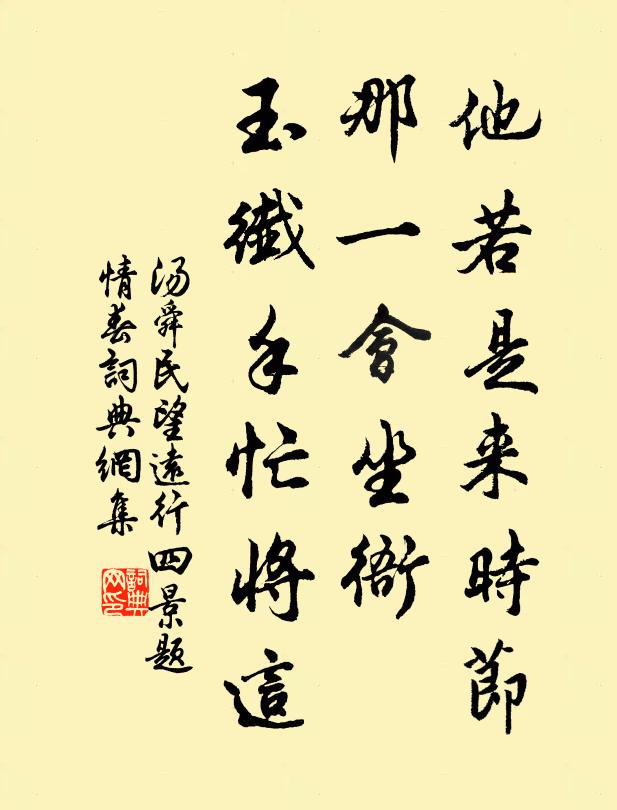 他若是来時節
那一會坐衙
玉纖手忙將這
汤舜民望遠行四景題
情春詞典網集
詞典网印